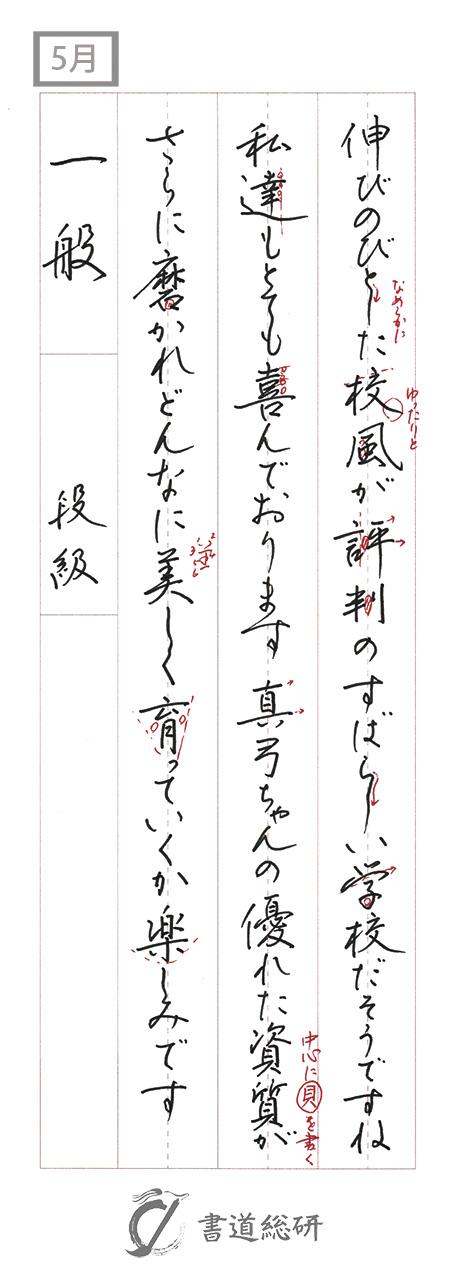 5月
伸びのびとした校風が評判のすばらしい学校だそうですね
なめらかに
ゆったりと
私達もとても喜んでおります真弓ちゃんの優れた資質が
中心に貝を書く
さらに磨かれどんなに美しく育っていくか楽しみです
一般
段級
書道総研